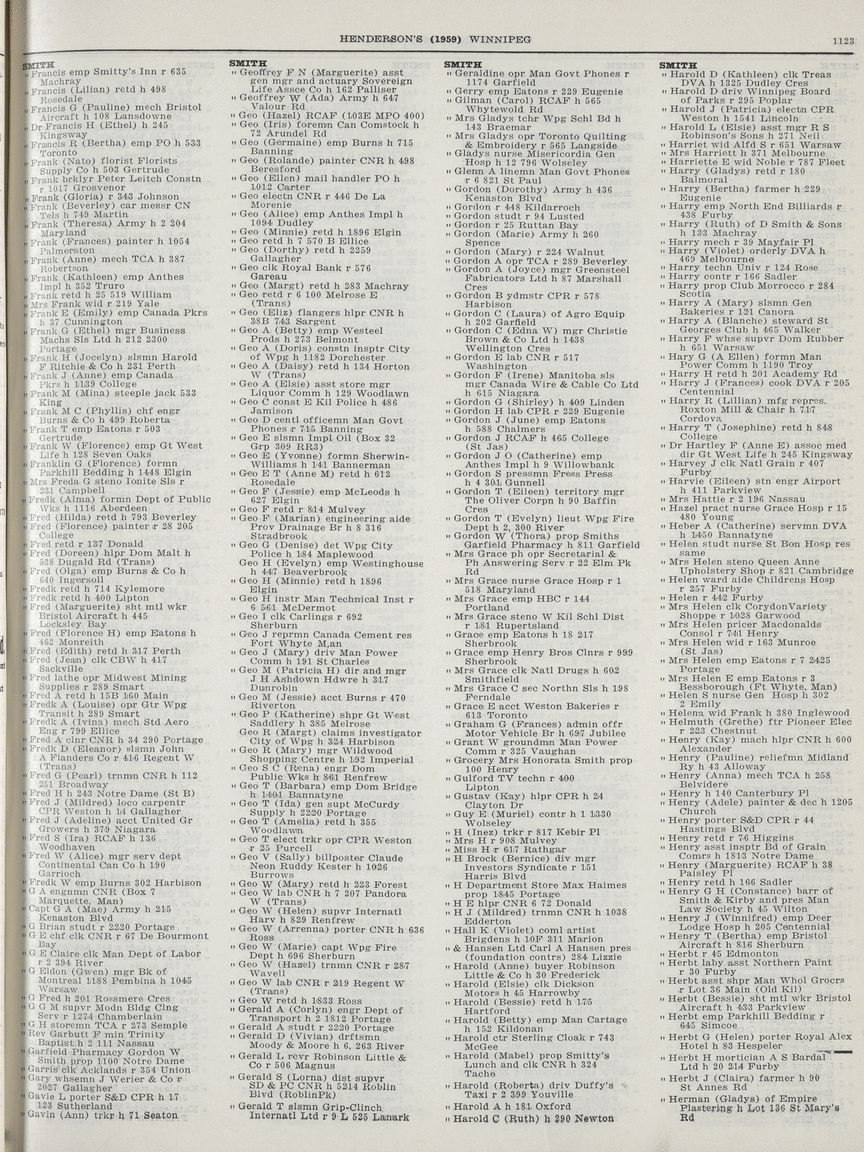 HENDERSON'S (1959) WINNIPEG
1123
SMITH
" Francis emp Smitty's Inn r 635
Machray
" Francis (Lilian) retd h 498
Rosedale
" Francis G (Pauline) mech Bristol
Aircraft h 108 Lansdowne
" Dr Francis H (Ethel) h 245
Kingsway
" Francis R (Bertha) emp PO h 533
Toronto
" Frank (Nato) florist Florists
Supply Co h 503 Gertrude
" Frank brklyr Peter Leitch Constn
r 1017 Grosvenor
" Frank (Gloria) r 343 Johnson
" Frank (Beverley) car messr CN
Tels h 749 Martin
" Frank (Theresa) Army h 2 204
Maryland
" Frank (Frances) painter h 1054
Palmerston
" Frank (Anne) mech TCA h 387
Robertson
" Frank (Kathleen) emp Anthes
Impl h 352 Truro
" Frank retd h 25 519 William
" Mrs Frank wid r 219 Yale
" Frank E (Emily) emp Canada Pkrs
h 37 Cunnington
" Frank G (Ethel) mgr Business
Machs Sls Ltd h 212 2300
Portage
" Frank H (Jocelyn) slsmn Harold
F Ritchie & Co h 231 Perth
" Frank J (Anne) emp Canada
Pkrs h 1139 College
" Frank M (Mina) steeple jack 533
King
" Frank M C (Phyllis) chf engr
Burns & Co h 499 Roberta
" Frank T emp Eatons r 503
Gertrude
" Frank W (Florence) emp Gt West
Life h 128 Seven Oaks
" Franklin G (Florence) formn
Parkhill Bedding h 1448 Elgin
" Mrs Freda G steno Ionite Sls r
231 Campbell
" Fredk (Alma) formn Dept of Public
Wks h 1116 Aberdeen
" Fred (Hilda) retd h 793 Beverley
" Fred (Florence) painter r 28 205
College
" Fred retd r 137 Donald
" Fred (Doreen) hlpr Dom Malt h
538 Dugald Rd (Trans)
" Fred (Olga) emp Burns & Co h
640 Ingersoll
" Fredk retd h 714 Kylemore
" Fredk retd h 400 Lipton
" Fred (Marguerite) sht mtl wkr
Bristol Aircraft h 445
Locksley Bay
" Fred (Florence H) emp Eatons h
462 Monreith
" Fred (Edith) retd h 317 Perth
" Fred (Jean) clk CBW h 417
Sackville
" Fred lathe opr Midwest Mining
Supplies r 289 Smart
" Fred A retd h 15B 160 Main
" Fredk A (Louise) opr Gtr Wpg
Transit h 289 Smart
" Fredk A (Ivina) mech Std Aero
Eng r 799 Ellice
" Fred A clnr CNR h 34 290 Portage
" Fredk D (Eleanor) slsmn John
A Flanders Co r 416 Regent W
(Trans)
" Fred G (Pearl) trnmn CNR h 112
251 Broadway
" Fred H h 243 Notre Dame (St B)
" Fred J (Mildred) loco carpentr
CPR Weston h 14 Gallagher
" Fred J (Adeline) acct United Gr
Growers h 379 Niagara
" Fred S (Ira) RCAF h 136
Woodhaven
" Fred W (Alice) mgr serv dept
Continental Can Co h 190
Garrioch
" Fredk W emp Burns 302 Harbison
" G A engnmn CNR (Box 7
Marquette, Man)
" Capt G A (Mae) Army h 215
Kenaston Blvd
" G Brian studt r 2220 Portage
" G E chf clk CNR r 67 De Bourmont
Bay
" G E Claire clk Man Dept of Labor
r 2 394 River
" G Eldon (Gwen) mgr Bk of
Montreal 1188 Pembina h 1045
Warsaw
" G Fred h 201 Rossmere Cres
" G G M supvr Modn Bldg Clng
Serv r 1274 Chamberlain
" G H storemn TCA r 273 Semple
" Rev Garbutt F min Trinity
Baptist h 2 111 Nassau
" Garfield Pharmacy Gordon W
Smith prop 1100 Notre Dame
" Garris clk Acklands r 354 Union
" Gary whsemn J Werier & Co r
2027 Gallagher
" Gavie L porter S&D CPR h 17
123 Sutherland
" Gavin (Ann) trkr h 71 Seaton
SMITH
" Geoffrey F N (Marguerite) asst
gen mgr and actuary Sovereign
Life Assce Co h 162 Palliser
" Geoffrey W (Ada) Army h 647
Valour Rd
" Geo (Hazel) RCAF (103E MPO 400)
" Geo (Iris) foremn Can Comstock h
72 Arundel Rd
" Geo (Germaine) emp Burns h 715
Banning
" Geo (Rolande) painter CNR h 498
Beresford
" Geo (Ellen) mail handler PO h
1012 Carter
" Geo electn CNR r 446 De La
Morenie
" Geo (Alice) emp Anthes Impl h
1094 Dudley
" Geo (Minnie) retd h 1896 Elgin
" Geo retd h 7 570 B Ellice
" Geo (Dorthy) retd h 2259
Gallagher
" Geo clk Royal Bank r 576
Gareau
" Geo (Margt) retd h 283 Machray
" Geo retd r 6 100 Melrose E
(Trans)
" Geo (Eliz) flangers hlpr CNR h
38B 743 Sargent
" Geo A (Betty) emp Westeel
Prods h 273 Belmont
" Geo A (Doris) constn insptr City
of Wpg h 1182 Dorchester
" Geo A (Daisy) retd h 134 Horton
W (Trans)
" Geo A (Elsie) asst store mgr
Liquor Comm h 129 Woodlawn
" Geo C const E Kil Police h 486
Jamison
" Geo D centl officemn Man Govt
Phones r 715 Banning
" Geo E slsmn Impl Oil (Box 32
Grp 309 RR3)
" Geo E (Yvonne) formn Sherwin-
Williams h 141 Bannerman
" Geo E T (Anne M) retd h 612
Rosedale
" Geo F (Jessie) emp McLeods h
627 Elgin
" Geo F retd r 814 Mulvey
" Geo F (Marian) engineering aide
Prov Drainage Br h 8 316
Stradbrook
" Geo G (Denise) det Wpg City
Police h 184 Maplewood
" Geo H (Evelyn) emp Westinghouse
h 447 Beaverbrook
" Geo H (Minnie) retd h 1896
Elgin
" Geo H instr Man Technical Inst r
6 561 McDermot
" Geo I clk Carlings r 692
Sherburn
" Geo J reprmn Canada Cement res
Fort Whyte M,an
" Geo J (Mary) driv Man Power
Comm h 191 St Charles
" Geo M (Patricia H) dir and mgr
J H Ashdown Hdwre h 317
Dunrobin
" Geo M (Jessie) acct Burns r 470
Riverton
" Geo P (Katherine) shpr Gt West
Saddlery h 385 Melrose
" Geo R (Margt) claims investigator
City of Wpg h 324 Harbison
" Geo R (Mary) mgr Wildwood
Shopping Centre h 192 Imperial
" Geo S C (Rena) engr Dom
Public Wks h 861 Renfrew
" Geo T (Barbara) emp Dom Bridge
h 1401 Bannatyne
" Geo T (Ida) gen supt McCurdy
Supply h 2220 Portage
" Geo T (Amelia) retd h 355
Woodlawn
" Geo T elect trkr opr CPR Weston
r 25 Purcell
" Geo V (Sally) billposter Claude
Neon Ruddy Kester h 1026
Burrows
" Geo W (Mary) retd h 223 Forest
" Geo W lab CNR h 7 207 Pandora
W (Trans)
" Geo W (Helen) supvr Internatl
Harv h 829 Renfrew
" Geo W (Arrenna) porter CNR h 636
Ross
" Geo W (Marie) capt Wpg Fire
Dept h 696 Sherburn
" Geo W (Hazel) trnmn CNR r 287
Wavell
" Geo W lab CNR r 219 Regent W
(Trans)
" Geo W retd h 1833 Ross
" Gerald A (Corlyn) engr Dept of
Transport h 2 1812 Portage
" Gerald A studt r 2220 Portage
" Gerald D (Vivian) drftsmn
Moody & Moore h 6, 263 River
" Gerald L revr Robinson Little &
Co r 506 Magnus
" Gerald S (Lorna) dist supvr
SD & PC CNR h 5214 Roblin
Blvd (RoblinPk)
" Gerald T slsmn Grip-Clinch
Internatl Ltd r 9 L 525 Lanark
SMITH
" Geraldine opr Man Govt Phones r
1174 Garfield
" Gerry emp Eatons r 229 Eugenie
" Gilman (Carol) RCAF h 565
Whytewold Rd
" Mrs Gladys tchr Wpg Schl Bd h
143 Braemar
" Mrs Gladys opr Toronto Quilting
& Embroidery r 565 Langside
" Gladys nurse Misericordia Gen
Hosp h 12 796 Wolseley
" Glenn A linemn Man Govt Phones
r 6 821 St Paul
" Gordon (Dorothy) Army h 436
Kenaston Blvd
" Gordon r 448 Kildarroch
" Gordon studt r 94 Lusted
" Gordon r 25 Ruttan Bay
" Gordon (Marie) Army h 260
Spence
" Gordon (Mary) r 224 Walnut
" Gordon A opr TCA r 289 Beverley
" Gordon A (Joyce) mgr Greensteel
Fabricators Ltd h 87 Marshall
Cres
" Gordon B ydmstr CPR r 578
Harbison
" Gordon C (Laura) of Agro Equip
h 202 Garfield
" Gordon C (Edna W) mgr Christie
Brown & Co Ltd h 1438
Wellington Cres
" Gordon E lab CNR r 517
Washington
" Gordon F (Irene) Manitoba sls
mgr Canada Wire & Cable Co Ltd
h 615 Niagara
" Gordon G (Shirley) h 409 Linden
" Gordon H lab CPR r 229 Eugenie
" Gordon J (June) emp Eatons
h 588 Chalmers
" Gordon J RCAF h 465 College
(St Jas)
" Gordon J O (Catherine) emp
Anthes Impl h 9 Willowbank
" Gordon S pressmn Free Press
h 4 301 Gunnell
" Gordon T (Eileen) territory mgr
The Oliver Corpn h 90 Baffin
Cres
" Gordon T (Evelyn) lieut Wpg Fire
Dept h 2, 300 River
" Gordon W (Thora) prop Smiths
Garfield Pharmacy h 811 Garfield
" Mrs Grace ph opr Secretarial &
Ph Answering Serv r 22 Elm Pk
Rd
" Mrs Grace nurse Grace Hosp r 1
518 Maryland
" Mrs Grace emp HBC r 144
Portland
" Mrs Grace steno W Kil Schl Dist
r 181 Rupertsland
" Grace emp Eatons h 18 217
Sherbrook
" Grace emp Henry Bros Clnrs r 999
Sherbrook
" Mrs Grace clk Natl Drugs h 602
Smithfield
" Mrs Grace C sec Northn Sls h 198
Ferndale
" Grace E acct Weston Bakeries r
613 Toronto
" Graham G (Frances) admin offr
Motor Vehicle Br h 697 Jubilee
" Grant W groundmn Man Power
Comm r 325 Vaughan
" Grocery Mrs Honorata Smith prop
100 Henry
" Gulford TV techn r 400
Lipton
" Gustav (Kay) hlpr CPR h 24
Clayton Dr
" Guy E (Muriel) contr h 1 1330
Wolseley
" H (Inez) trkr r 817 Kebir Pl
" Mrs H r 908 Mulvey
" Miss H r 617 Rathgar
" H Brock (Bernice) div mgr
Investors Syndicate r 151
Harris Blvd
" H Department Store Max Haimes
prop 1845 Portage
" H E hlpr CNR 6 72 Donald
" H J (Mildred) trnmn CNR h 1038
Edderton
" Hall K (Violet) coml artist
Brigdens h 10F 311 Marion
" & Hansen Ltd Carl A Hansen pres
(foundation contrs) 284 Lizzie
" Harold (Anne) buyer Robinson
Little & Co h 30 Frederick
" Harold (Elsie) clk Dickson
Motors h 45 Harrowby
" Harold (Bessie) retd h 175
Hartford
" Harold (Betty) emp Man Cartage
h 152 Kildonan
" Harold ctr Sterling Cloak r 743
McGee
" Harold (Mabel) prop Smitty's
Lunch and clk CNR h 324
Tache
" Harold (Roberta) driv Duffy's
Taxi r 2 399 Youville
" Harold A h 181 Oxford
" Harold C (Ruth) h 290 Newton
SMITH
" Harold D (Kathleen) clk Treas
DVA h 1325 Dudley Cres
" Harold D driv Winnipeg Board
of Parks r 295 Poplar
" Harold J (Patricia) electn CPR
Weston h 1541 Lincoln
" Harold L (Elsie) asst mgr R S
Robinson's Sons h 271 Neil
" Harriet wid Alfd S r 651 Warsaw
" Mrs Harriett h 371 Melbourne
" Harriette E wid Noble r 787 Fleet
" Harry (Gladys) retd r 180
Balmoral
" Harry (Bertha) farmer h 229
Eugenie
" Harry emp North End Billiards r
438 Furby
" Harry (Ruth) of D Smith & Sons
h 133 Machray
" Harry mech r 39 Mayfair Pl
" Harry (Violet) orderly DVA h
469 Melbourne
" Harry techn Univ r 124 Rose
" Harry contr r 166 Sadler
" Harry prop Club Morrocco r 284
Scotia
" Harry A (Mary) slsmn Gen
Bakeries r 121 Canora
" Harry A (Blanche) steward St
Georges Club h 465 Walker
" Harry F whse supvr Dom Rubber
h 651 Warsaw
" Hary G (A Ellen) formn Man
Power Comm h 1190 Troy
" Harry H retd h 201 Academy Rd
" Harry J (Frances) cook DVA r 205
Centennial
" Harry R (Lillian) mfg repres.
Roxton Mill & Chair h 717
Cordova
" Harry T (Josephine) retd h 848
College
" Dr Hartley F (Anne E) assoc med
dir Gt West Life h 245 Kingsway
" Harvey J clk Natl Grain r 407
Furby
" Harvie (Eileen) stn engr Airport
h 411 Parkview
" Mrs Hattie r 2 196 Nassau
" Hazel pract nurse Grace Hosp r 15
480 Young
" Heber A (Catherine) servmn DVA
h 1450 Bannatyne
" Helen studt nurse St Bon Hosp res
same
" Mrs Helen steno Queen Anne
Upholstery Shop r 821 Cambridge
" Helen ward aide Childrens Hosp
r 257 Furby
" Helen r 442 Furby
" Mrs Helen clk CorydonVariety
Shoppe r 1028 Garwood
" Mrs Helen pricer Macdonalds
Consol r 741 Henry
" Mrs Helen wid r 163 Munroe
(St Jas)
" Mrs Helen emp Eatons r 7 2425
Portage
" Mrs Helen E emp Eatons r 3
Bessborough (Ft Whyte, Man)
" Helen S nurse Gen Hosp h 302
2 Emily
" Helena wid Frank h 380 Inglewood
" Helmuth (Grethe) ftr Pioneer Elec
r 223 Chestnut
" Henry (Kay) mach hlpr CNR h 600
Alexander
" Henry (Pauline) reliefmn Midland
Ry h 43 Alloway
" Henry (Anna) mech TCA h 258
Belvidere
" Henry h 140 Canterbury Pl
" Henry (Adele) painter & dec h 1205
Church
" Henry porter S&D CPR r 44
Hastings Blvd
" Henry retd r 76 Higgins
" Henry asst insptr Bd of Grain
Comrs h 1813 Notre Dame
" Henry (Marguerite) RCAF h 38
Paisley Pl
" Henry retd h 166 Sadler
" Henry G H (Constance) barr of
Smith & Kirby and pres Man
Law Society h 45 Wilton
" Henry J (Winnifred) emp Deer
Lodge Hosp h 205 Centennial
" Henry T (Bertha) emp Bristol
Aircraft h 816 Sherburn
" Herbt r 45 Edmonton
" Herbt laby asst Northern Paint
r 30 Furby
" Herbt asst shpr Man Whol Grocrs
r Lot 36 Main (Old Kil)
" Herbt (Bessie) sht mtl wkr Bristol
Aircraft h 433 Parkview
" Herbt emp Parkhill Bedding r
645 Simcoe
" Herbt G (Helen) porter Royal Alex
Hotel h 83 Hespeler
" Herbt H mortician A S Bardal
Ltd h 20 214 Furby
" Herbt J (Claira) farmer h 90
St Annes Rd
" Herman (Gladys) of Empire
Plastering h Lot 136 St Mary's
Rd